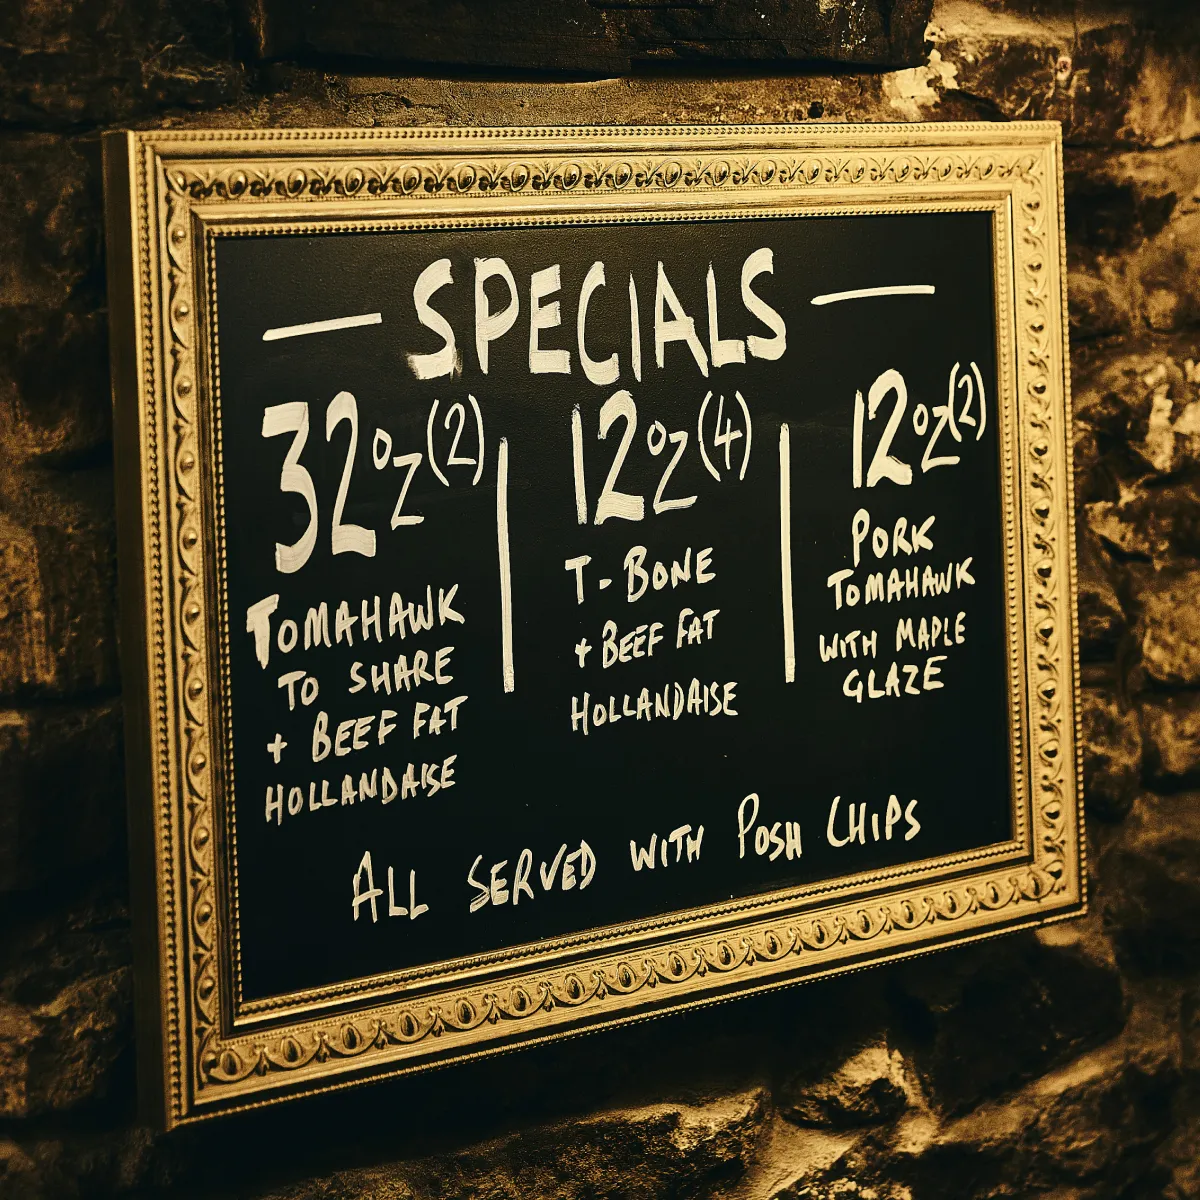 — SPECIALS —
32oz (2)
TOMAHAWK
TO SHARE
+ BEEF FAT
HOLLANDAISE
12oz (4)
T-BONE
+ BEEF FAT
HOLLANDAISE
12oz (2)
PORK
TOMAHAWK
WITH MAPLE
GLAZE
ALL SERVED WITH POSH CHIPS